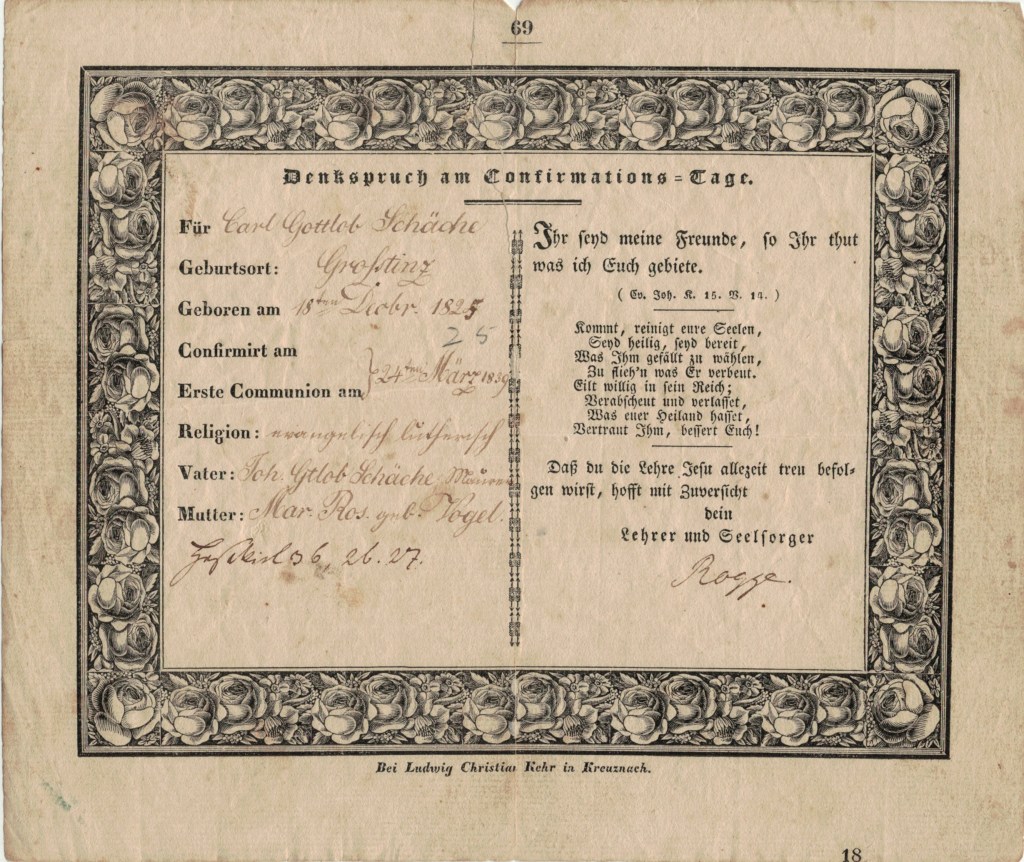 69
Denkspruch am Confirmations=Tage.
Für Carl Gottlob Schäche
Geburtsort: Großtinz
Geboren am 18ten Decbr. 1825
25
Confirmirt am
Erste Communion am } 24ten März 1839
Religion: evangelisch lutherisch
Vater: Joh. Gtlob Schäche, Maurer
Mutter: Mar. Ros. geb. Vogel.
Hesekiel 36, 26. 27.
Ihr seyd meine Freunde, so Ihr thut
was ich Euch gebiete.
( Ev. Joh. K. 15. V. 14. )
Kommt, reinigt eure Seelen,
Seyd heilig, seyd bereit,
Was Ihm gefällt zu wählen,
Zu flieh'n was Er verbeut.
Eilt willig in sein Reich;
Verabscheut und verlasset,
Was euer Heiland hasset,
Vertraut Ihm, bessert Euch!
Daß du die Lehre Jesu allezeit treu befol-
gen wirst, hofft mit Zuversicht
dein
Lehrer und Seelsorger
Rogge.
Bei Ludwig Christian Kehr in Kreuznach.
18